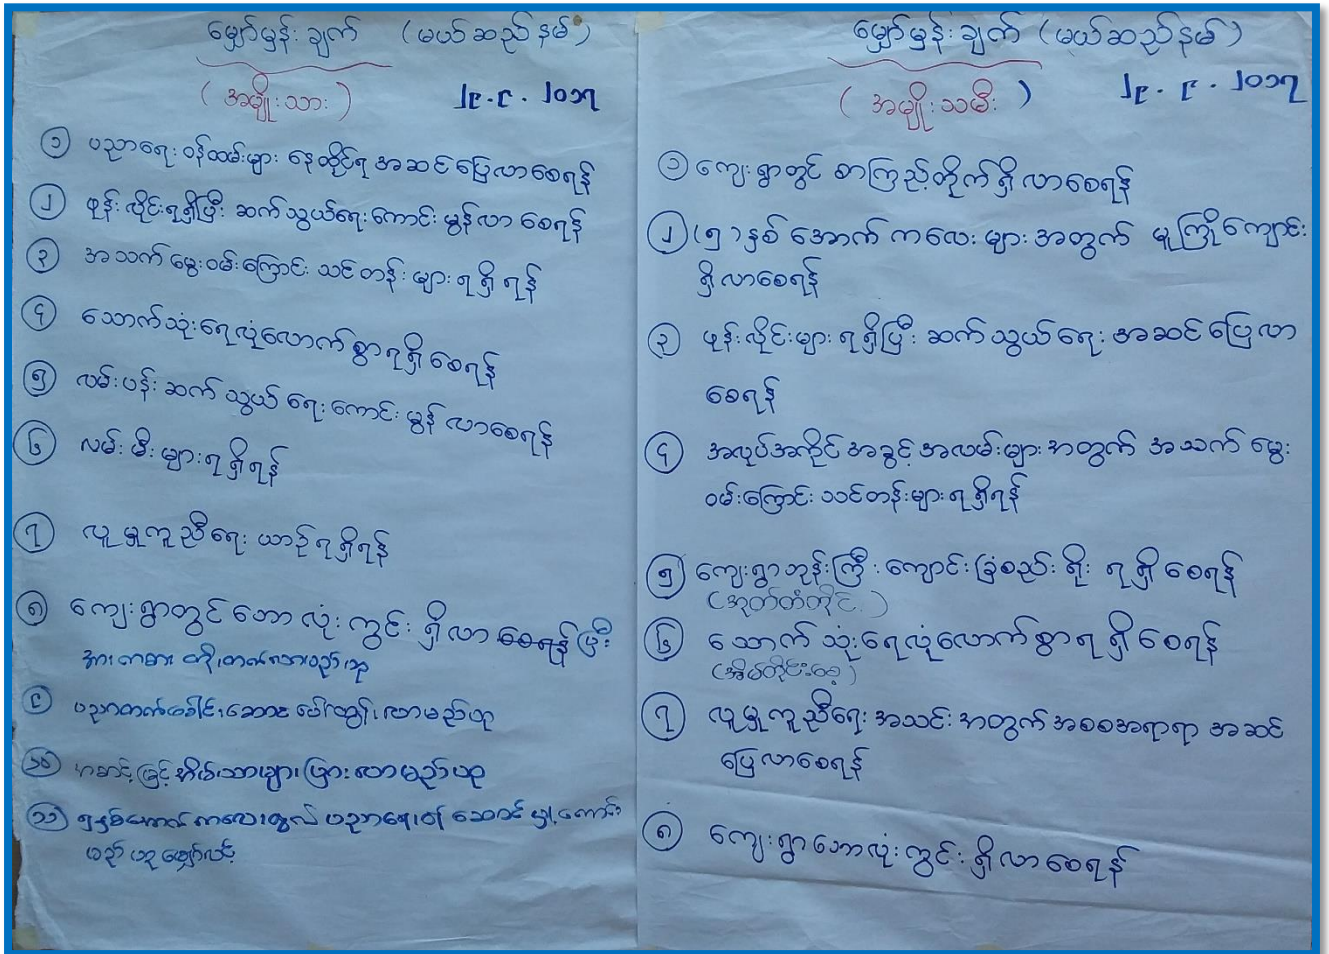 မျှော်မှန်းချက် (မယ်ဆည်နမ်)
(အမျိုးသား)
၂၉.၉.၂၀၁၇
၁ ပညာရေးဝန်ထမ်းများ နေထိုင်ရ အဆင်ပြေလာစေရန်
၂ ဖုန်းလိုင်းရရှိပြီး ဆက်သွယ်ရေးကောင်းမွန်လာစေရန်
၃ အသက်မွေးဝမ်းကြောင်း သင်တန်းများရရှိရန်
၄ သောက်သုံးရေလုံလောက်စွာရရှိစေရန်
၅ လမ်းပန်းဆက်သွယ်ရေးကောင်းမွန်လာစေရန်
၆ လမ်းမီးများရရှိရန်
၇ လူမှုကူညီရေးယာဉ်ရရှိရန်
၈ ကျေးရွာတွင်ဘောလုံးကွင်းရှိလာစေရန်ပြီး
အားကစား တိုးတက်လာမည်ဟု
၉ ပညာတတ်ခေါင်းဆောင်ပေါ်ထွန်းလာမည်ဟု
၁၀ အဆင့်မြင့်အိမ်သာများ များလာမည်ဟု
၁၁ ၅နှစ်အောက်ကလေးတွင် ပညာရေးဝန်ဆောင်မှုကောင်း
မည်ဟုမျှော်လင့်
မျှော်မှန်းချက် (မယ်ဆည်နမ်)
(အမျိုးသမီး)
၂၉.၉.၂၀၁၇
၁ ကျေးရွာတွင် စာကြည့်တိုက်ရှိလာစေရန်
၂ (၅)နှစ်အောက်ကလေးများအတွက် မူကြိုကျောင်း
ရှိလာစေရန်
၃ ဖုန်းလိုင်းများရရှိပြီး ဆက်သွယ်ရေး အဆင်ပြေလာ
စေရန်
၄ အလုပ်အကိုင်အခွင့်အလမ်းများအတွက် အသက်မွေး
ဝမ်းကြောင်းသင်တန်းများရရှိရန်
၅ ကျေးရွာဘုန်းကြီးကျောင်းခြံစည်းရိုး ရရှိစေရန်
(အုတ်တံတိုင်း)
၆ သောက်သုံးရေလုံလောက်စွာရရှိစေရန်
(အိမ်တိုင်းစေ့)
၇ လူမှုကူညီရေးအသင်းအတွက်အစစအရာရာ အဆင်
ပြေလာစေရန်
၈ ကျေးရွာဘောလုံးကွင်းရှိလာစေရန်